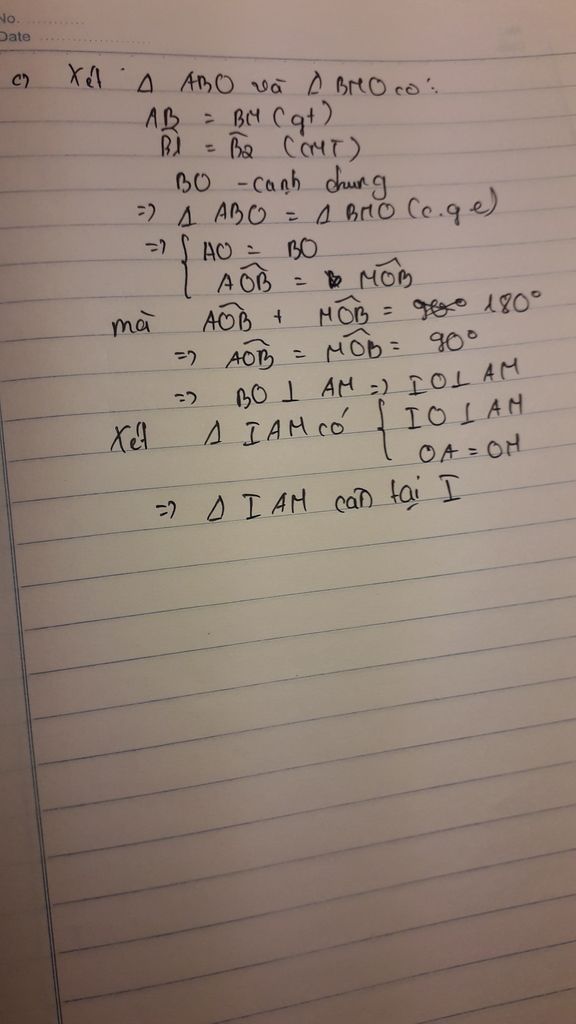 No. ............
Date ........................
c) Xét Δ ABO và Δ BMO có:
AB = BM (gt)
B̂1 = B̂2 (CMT)
BO - cạnh chung
=> Δ ABO = Δ BMO (c.g.c)
=> { AO = BO
AÔB = MÔB
mà AÔB + MÔB = 180°
=> AÔB = MÔB = 90°
=> BO ⊥ AM => IO ⊥ AM
Xét Δ IAM có { IO ⊥ AM
OA = OM
=> Δ IAM cân tại I